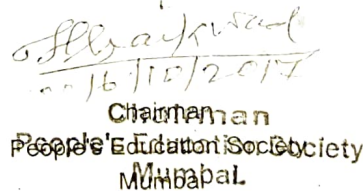 16/10/2017
Chairman
People's Education Society
Mumbai.